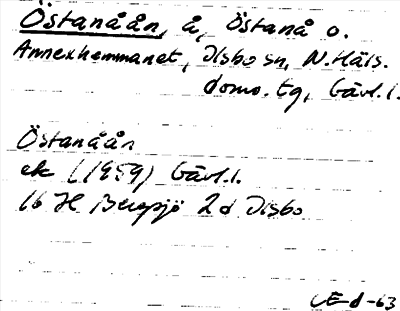 Östanåån, å, Östanå o.
Annexhemmanet, Ilsbo sn, N. Häls.
doms. tg, Gävl. l.
Östanåån
ek (1959) Gävl. l.
16 H Bergsjö 2d Ilsbo
CE-d-63